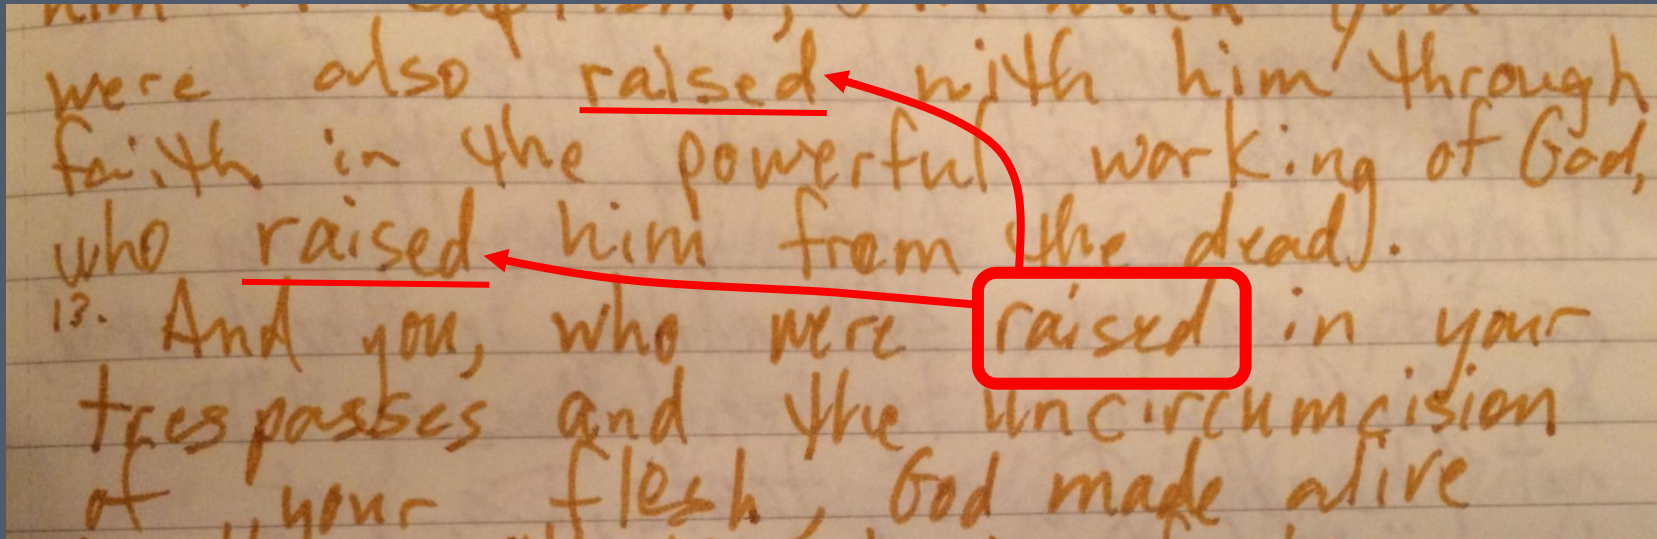 were also raised with him through
faith in the powerful working of God,
who raised him from the dead.
13. And you, who were raised in your
trespasses and the uncircumcision
of your flesh, God made alive